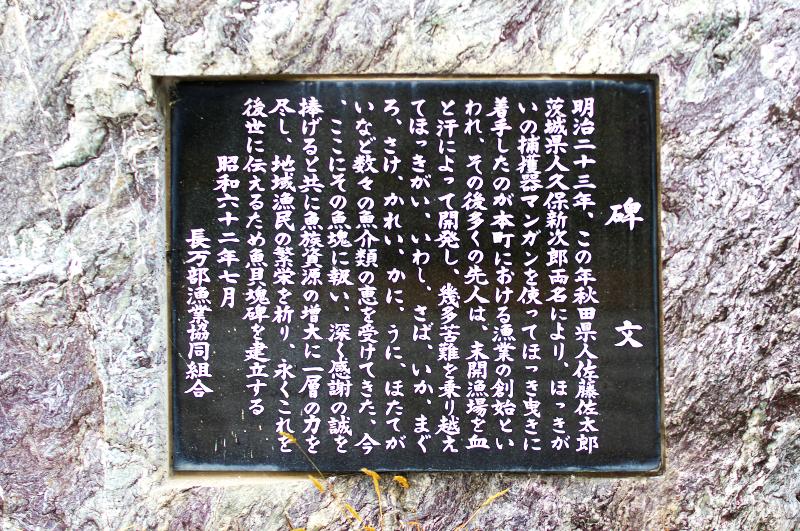 碑文
明治二十三年、この年秋田県人佐藤佐太郎
茨城県人久保新次郎両名により、ほっきが
いの捕獲器マンガンを使ってほっき曳きに
着手したのが本町における漁業の創始とい
われ、その後多くの先人は、未開漁場を血
と汗によって開発し、幾多苦難を乗り越え
てほっきがい、いわし、さば、いか、まぐ
ろ、さけ、かれい、かに、うに、ほたてが
いなど数々の魚介類の恵を受けてきた、今
、ここにその魚塊に報い、深く感謝の誠を
捧げると共に魚族資源の増大に一層の力を
尽し、地域漁民の繁栄を祈り、永くこれを
後世に伝えるため魚貝塊碑を建立する
昭和六十二年七月
長万部漁業協同組合